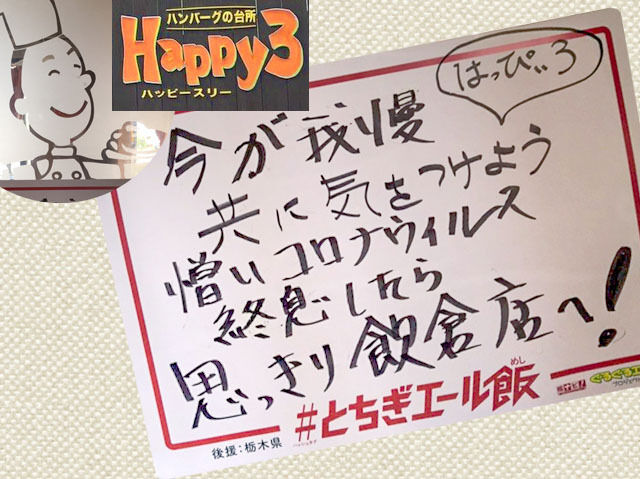 ハンバーグの台所
Happy3
ハッピースリー
はっぴぃ3
今が我慢
共に気をつけよう
憎いコロナウィルス
終息したら
思っきり飲倉店へ!
めし
#とちぎエール飯
ハッシュタグ
後援:栃木県
栃ナビ!